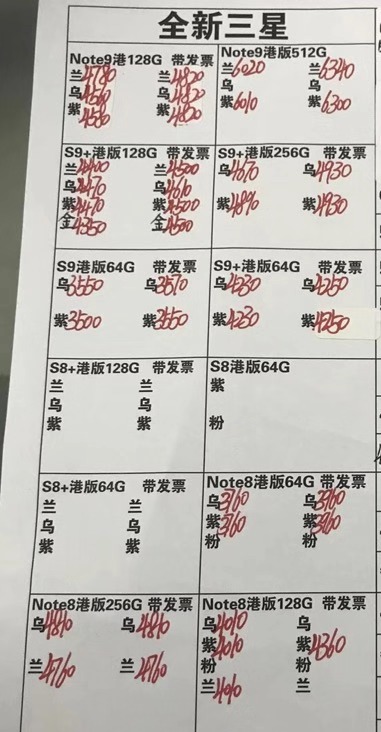 全新三星
Note9港128G 带发票
兰4780 兰4820
乌4540 乌4820
紫4580 紫4820
Note9港版512G
兰6020 兰6340
乌 乌
紫6010 紫6300
S9+港版128G 带发票
兰4400 兰4500
乌4470 乌4610
紫4470 紫4500
金4350 金4500
S9+港版256G 带发票
乌4670 乌4930
紫4890 紫4930
S9港版64G 带发票
乌3550 乌3570
紫3500 紫3550
S9+港版64G 带发票
乌4230 乌4250
紫4230 紫4250
S8+港版128G 带发票
兰 兰
乌 乌
紫 紫
S8港版64G
紫
粉
S8+港版64G 带发票
兰 兰
乌 乌
紫 紫
Note8港版64G 带发票
乌3760 乌3960
紫3760 紫3960
粉 粉
Note8港版256G 带发票
乌4840 乌4840
兰4760 兰4760
Note8港版128G 带发票
乌4010 乌
紫4010 紫4360
粉 粉
兰4010 兰